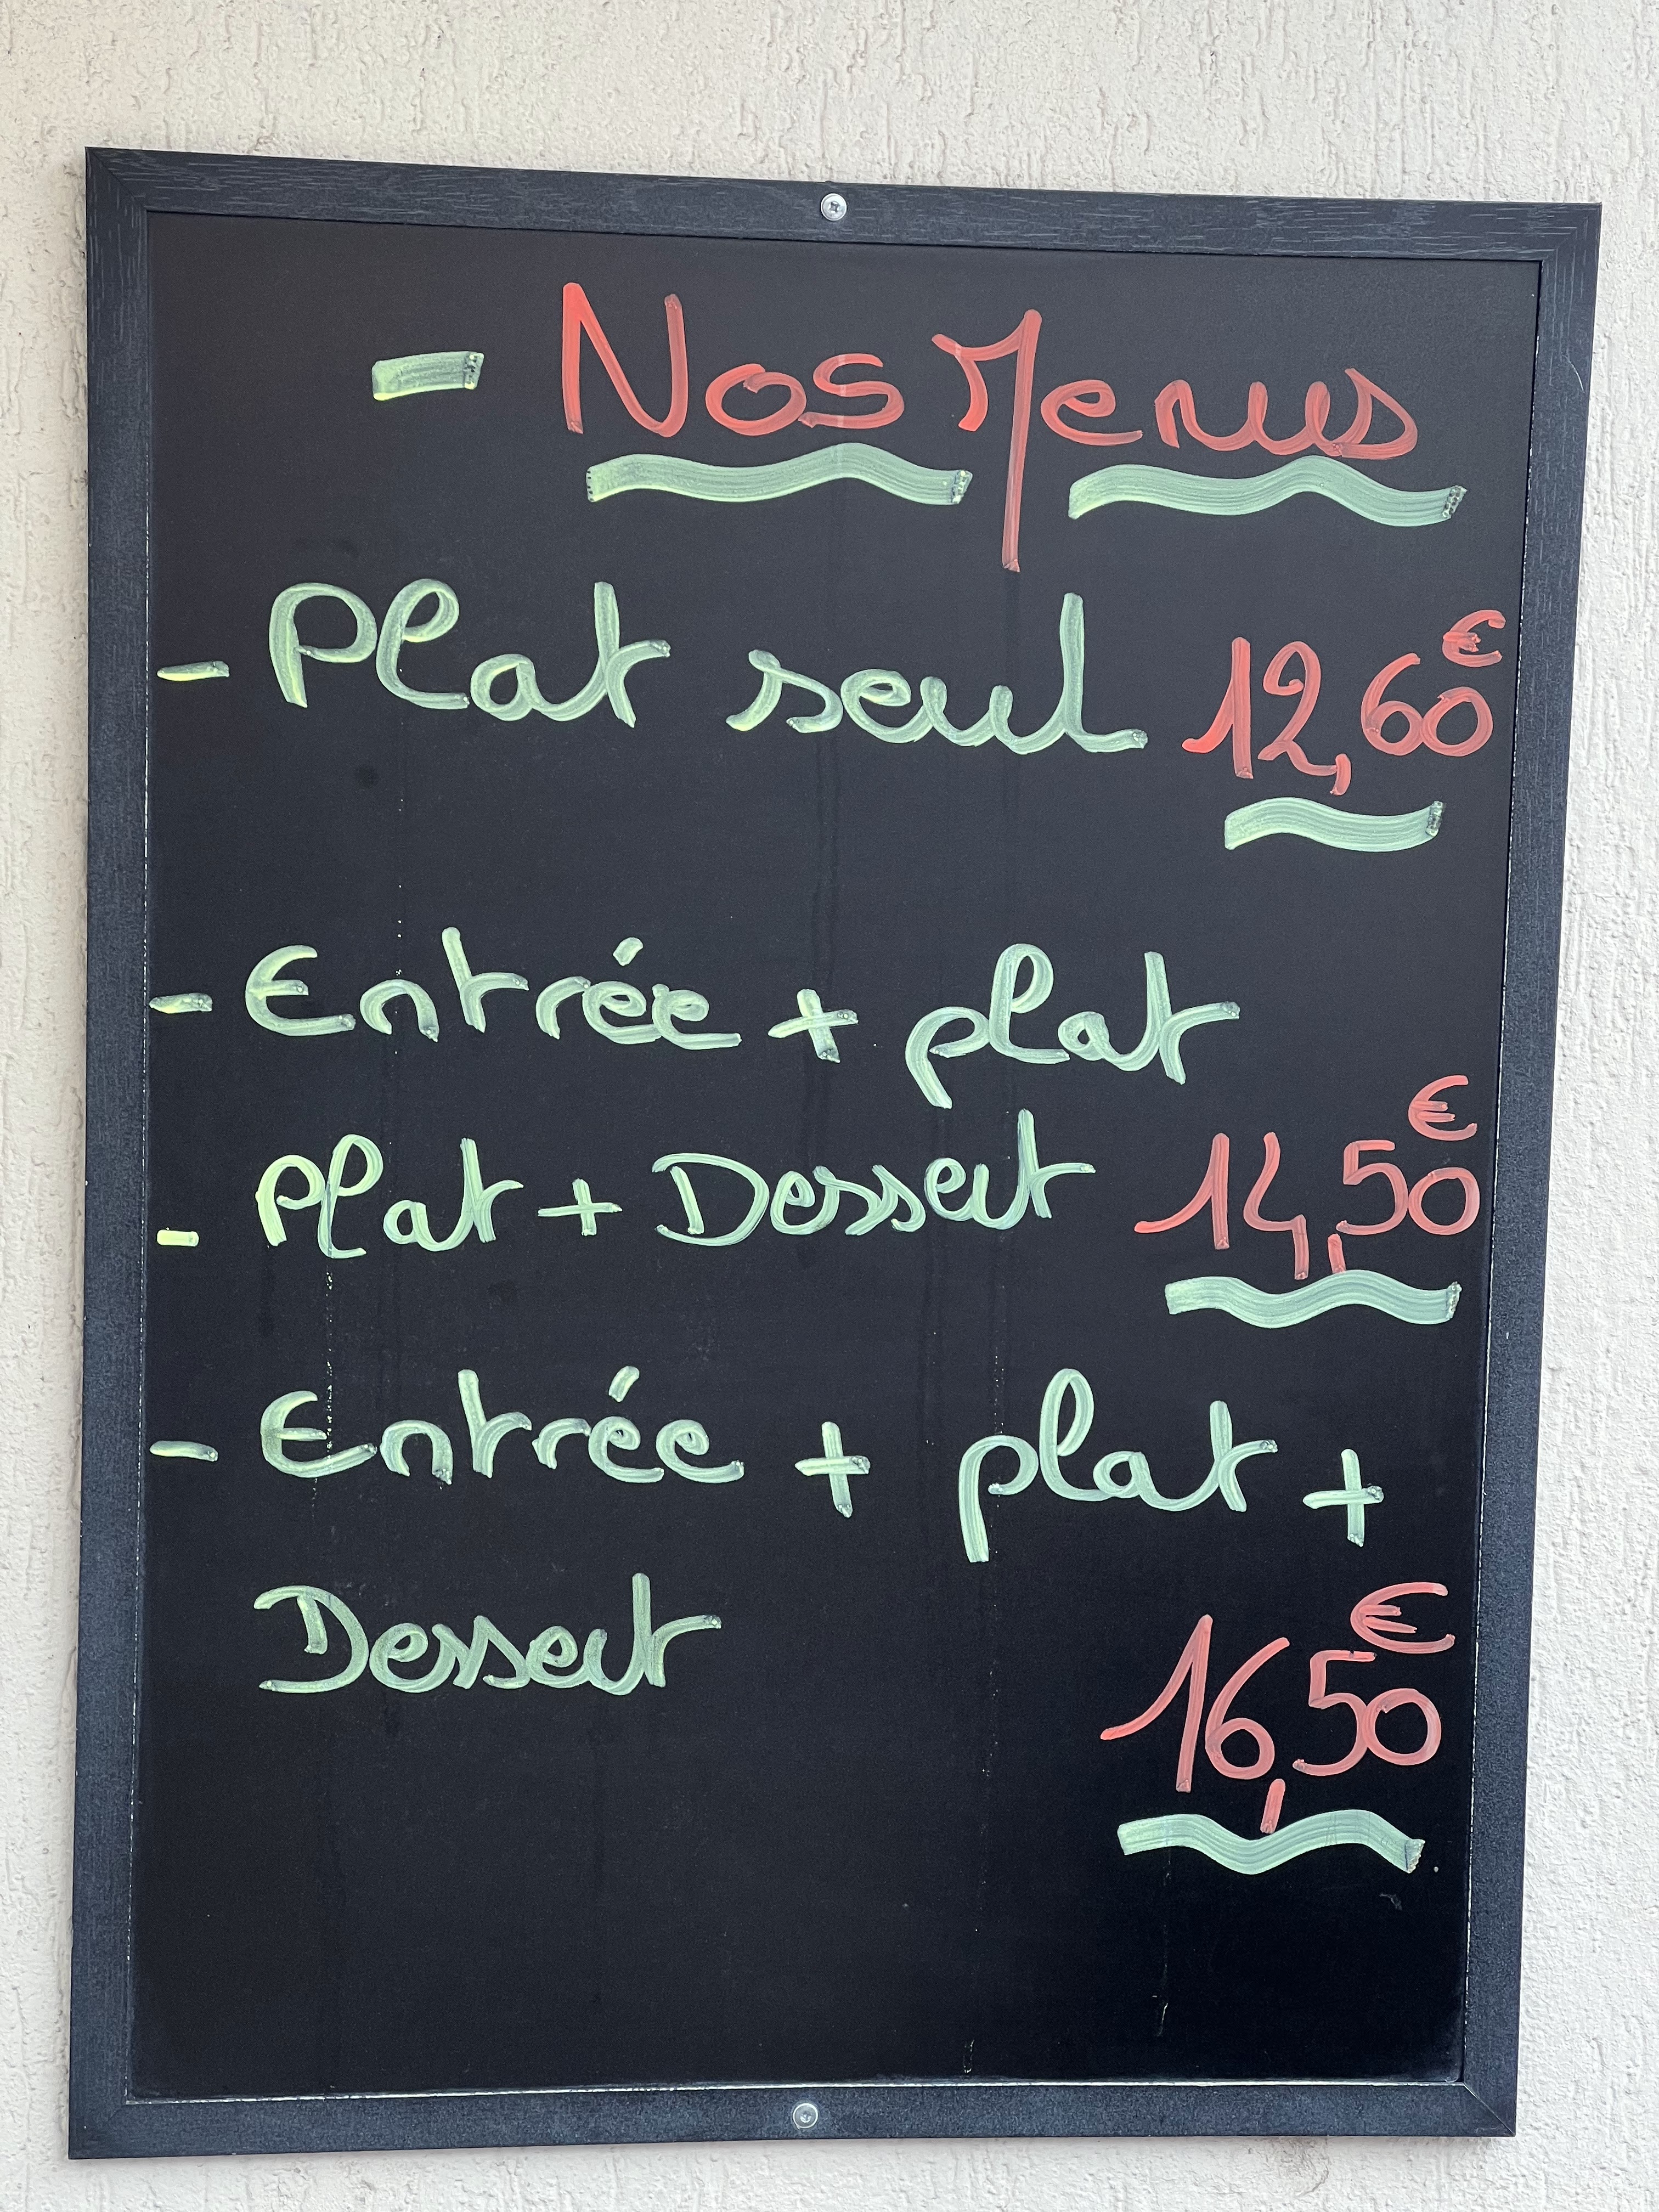 - Nos Menus
- Plat seul 12,60€
- Entrée + plat
- Plat + Dessert 14,50€
- Entrée + plat +
Dessert
16,50€